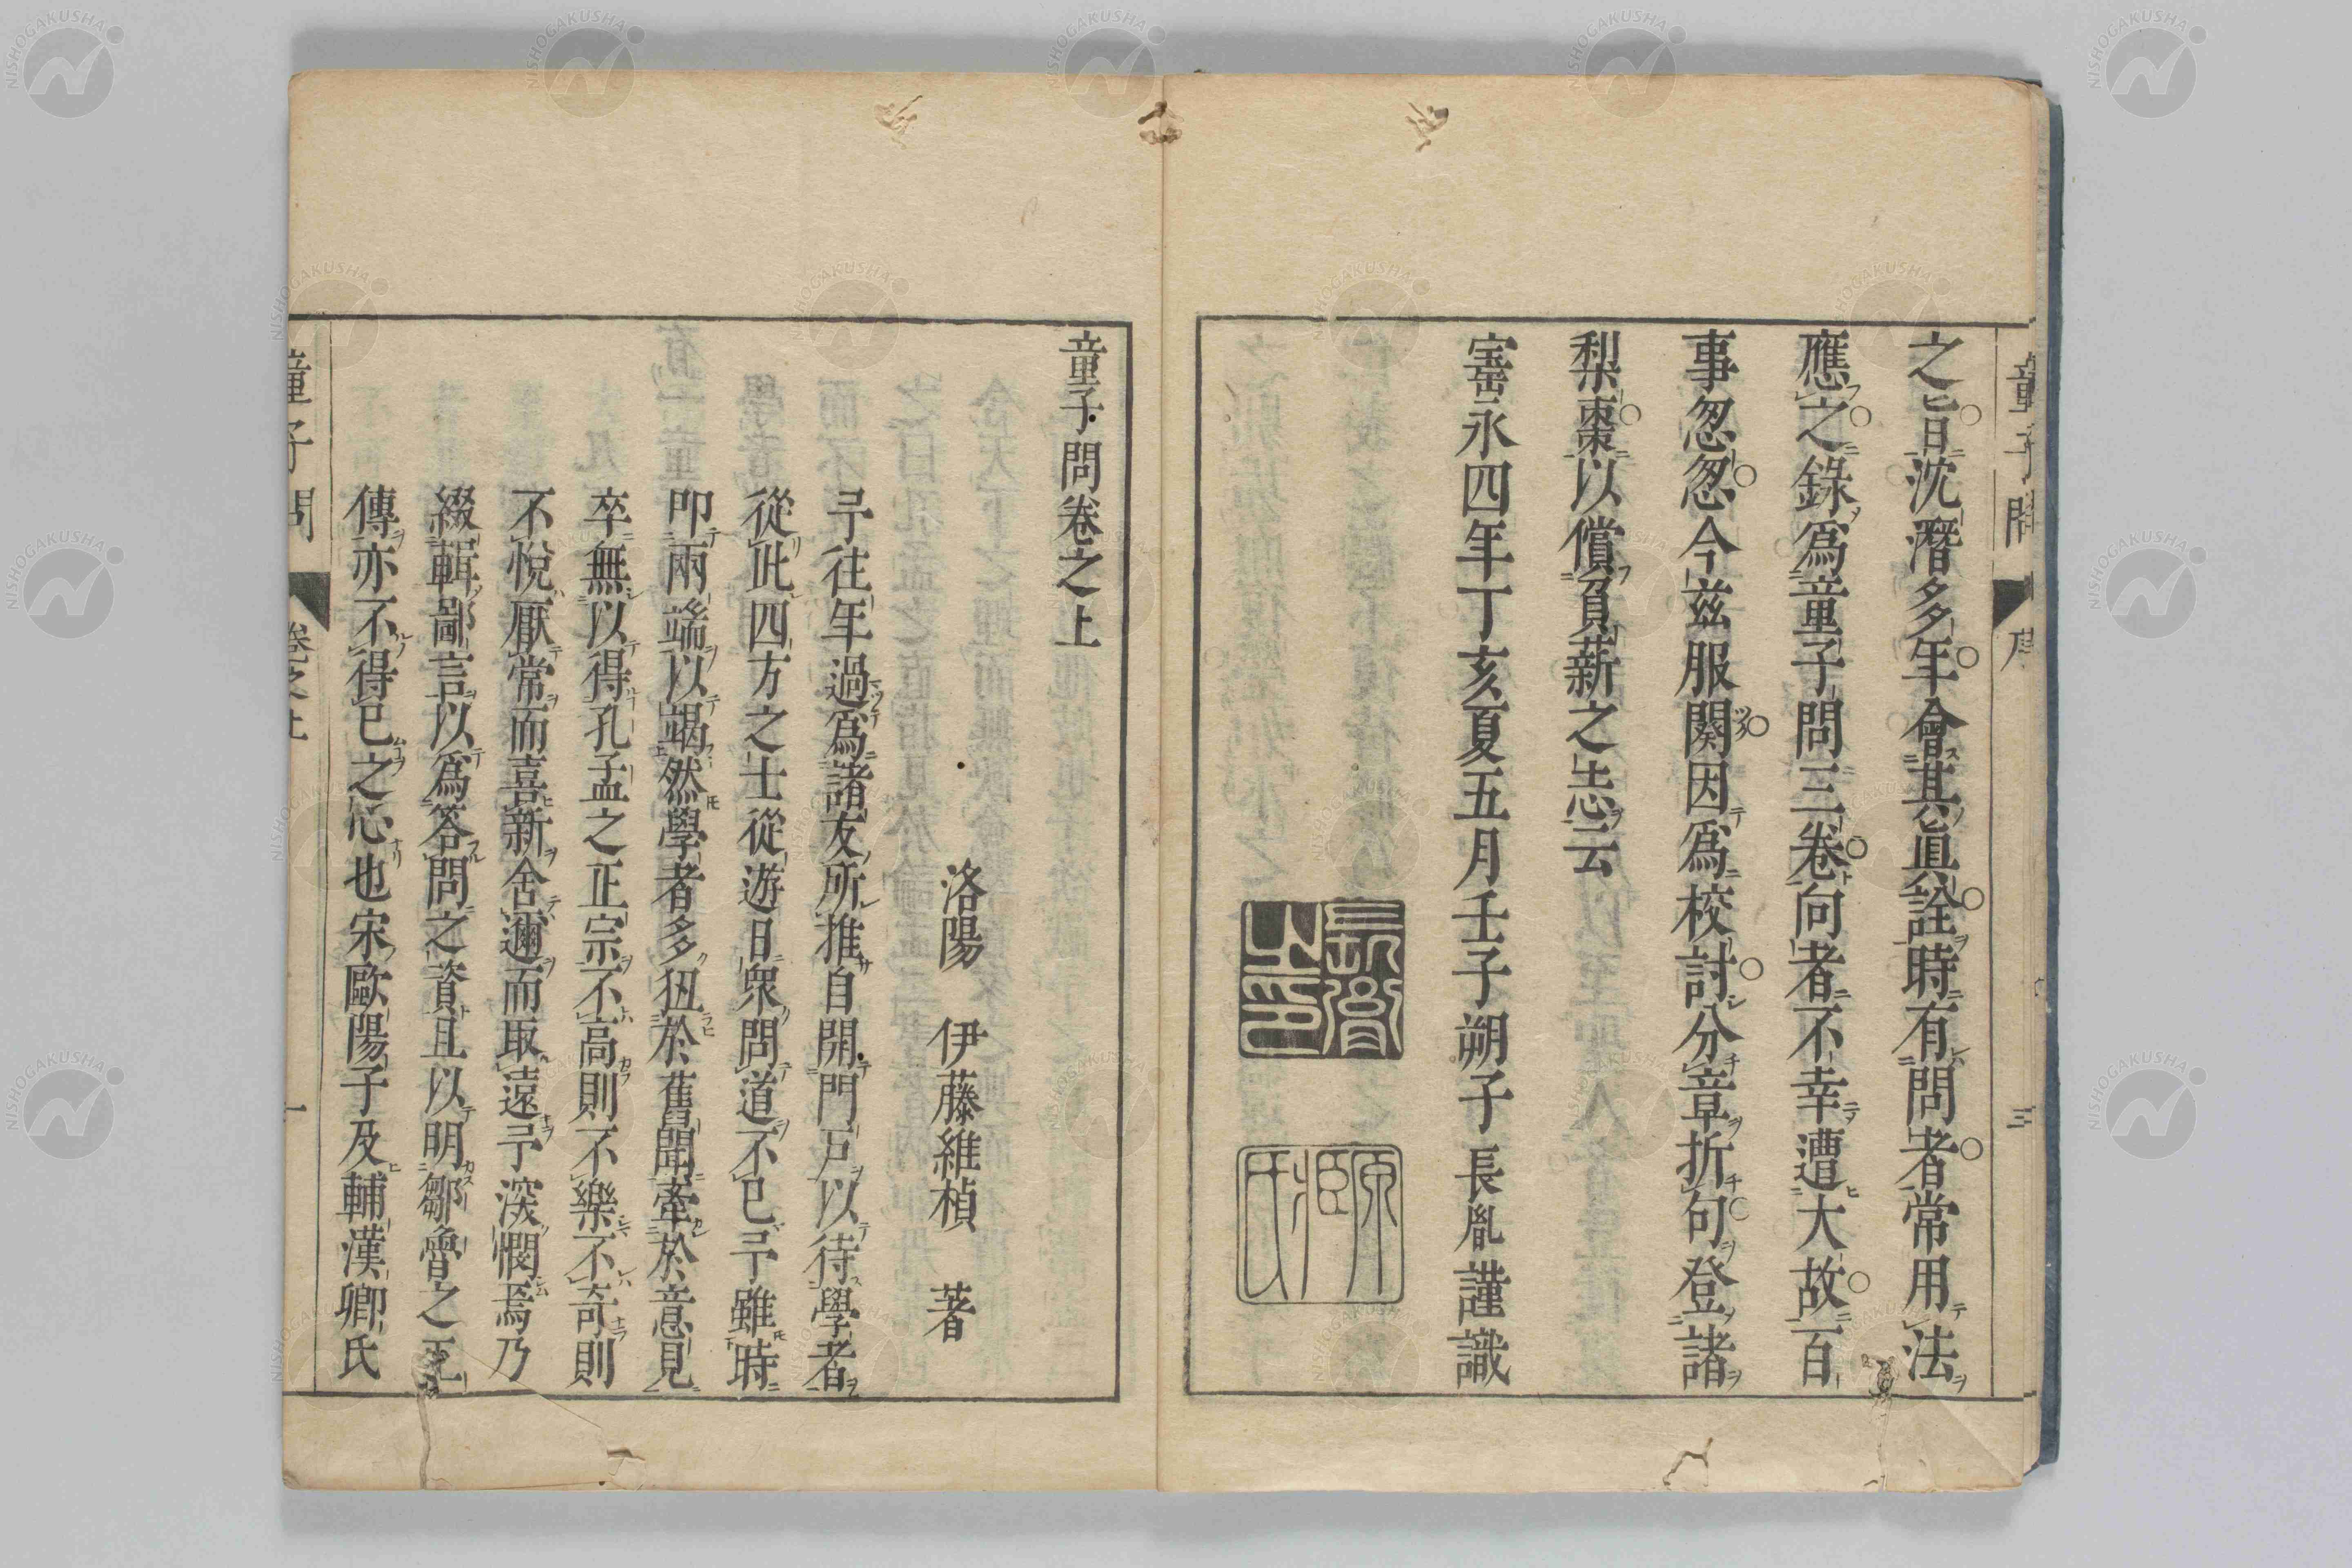 之旨沈潛多年會其眞詮時有問者常用法
應之錄爲童子問三卷向者不幸遭大故百
事忽忽今茲服闋因爲校討分章折句登諸
梨棗以償負薪之志云
寳永四年丁亥夏五月壬子朔子長胤謹識
童子問卷之上
洛陽 伊藤維楨 著
予往年過爲諸友所推自開門戸以待學者
從此四方之士從遊日衆問道不已予雖時
叩兩端以竭然學者多狃於舊聞牽於意見
卒無以得孔孟之正宗不高則不樂不奇則
不悅厭常而喜新舍邇而取遠予深憫焉乃
綴輯鄙言以爲答問之資且以明鄒魯之正
傳亦不得已之心也宋歐陽子及輔漢卿氏
童子問 卷之上 一
NISHOGAKUSHA